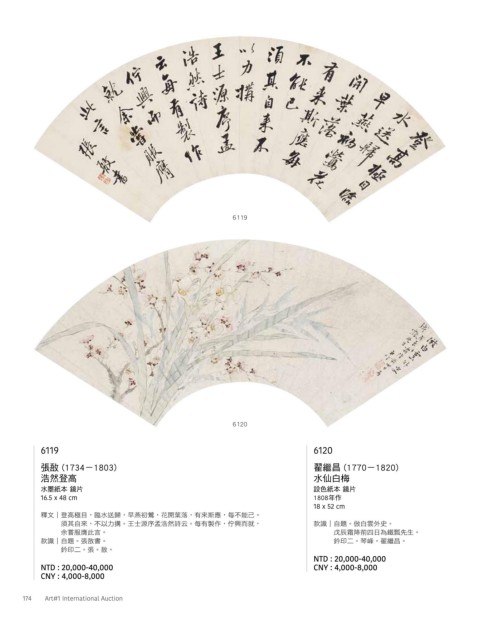 登高極目臨
水送歸
早燕初鶯花
開葉落
有來斯應每
不能已
須其自來不
以力搆
王士源序孟
浩然詩
云每有製作
佇興而
就余嘗服膺
此言 張敔書
6119
6120
6119
張敔(1734-1803)
浩然登高
水墨紙本 鏡片
16.5 x 48 cm
釋文│登高極目。臨水送歸。早燕初鶯。花開葉落。有來斯應。每不能已。
須其自來。不以力搆。王士源序孟浩然詩云。每有製作。佇興而就。
余嘗服膺此言。
款識│自題。張敔書。
鈐印二。張。敔。
NTD : 20,000-40,000
CNY : 4,000-8,000
6120
翟繼昌(1770-1820)
水仙白梅
設色紙本 鏡片
1808年作
18 x 52 cm
款識│自題。倣白雲外史。
戊辰霜降前四日為鐵瓢先生。
鈐印二。琴峰。翟繼昌。
NTD : 20,000-40,000
CNY : 4,000-8,000
174 Art#1 International Auction